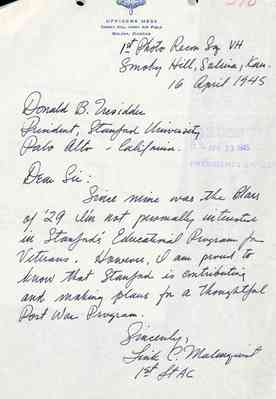 OFFICERS MESS
SMOKY HILL ARMY AIR FIELD
SALINA, KANSAS
1st Photo Recon Sq VH
Smoky Hill, Salina, Kan.
16 April 1945
Donald B. Tresidder
President, Stanford University
Palo Alto - California.
Dear Sir:
Since mine was the Class
of '29 I'm not personally interested
in Stanford's Educational Program for
Veterans. However, I am proud to
know that Stanford is contributing
and making plans for a thoughtful
Post War Program.
Sincerely,
C. Malmquist
1st Lt AC